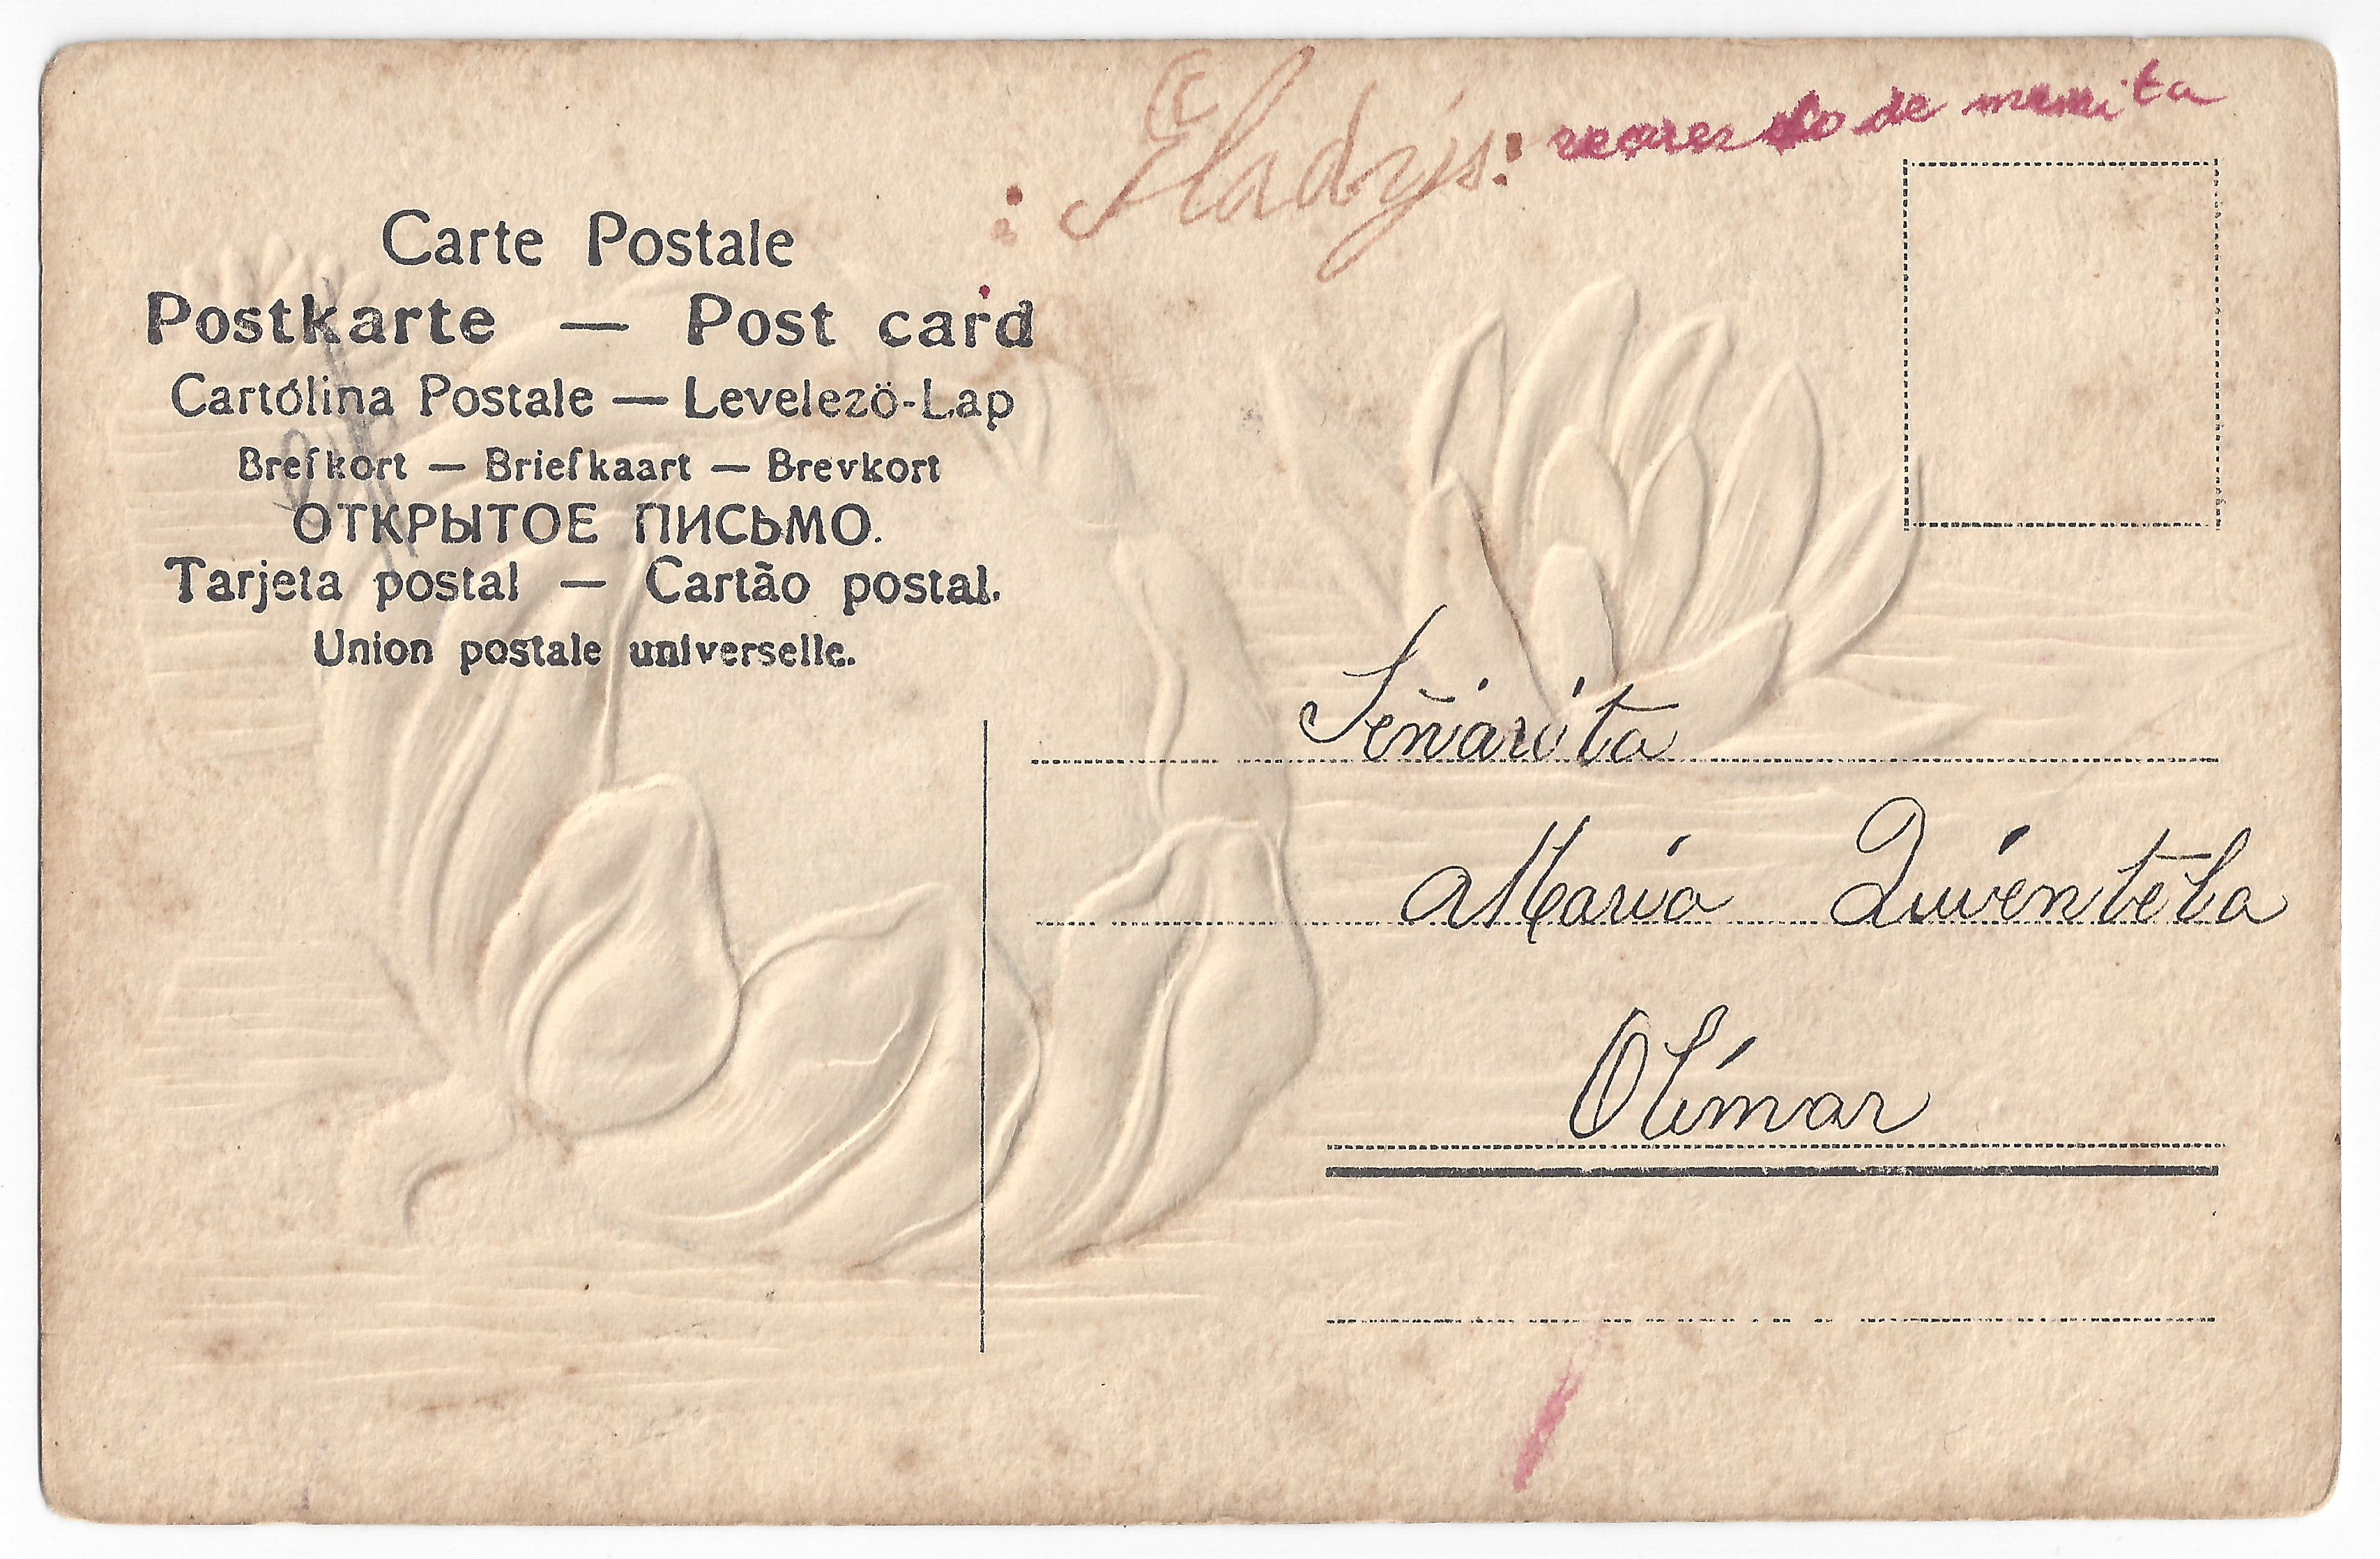 : Gladys: recuerdo de mamita
Carte Postale
Postkarte — Post card
Cartólina Postale — Levelezö-Lap
Brefkort — Briefkaart — Brevkort
ОТКРЫТОЕ ПИСЬМО.
Tarjeta postal — Cartão postal.
Union postale universelle.
Señiarita
Maria Quintela
Olímar